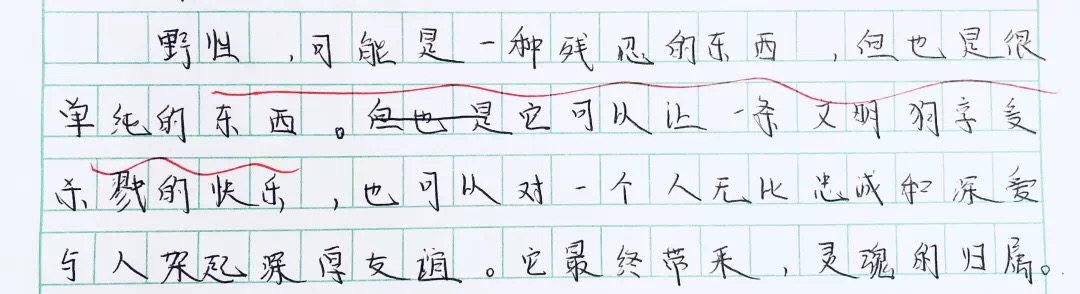 野性,可能是一种残忍的东西,但也是很
单纯的东西。但也是它可以让一条文明狗享受
杀戮的快乐,也可以对一个人无比忠诚和深爱
与人架起深厚友谊。它最终带来,灵魂的归属。